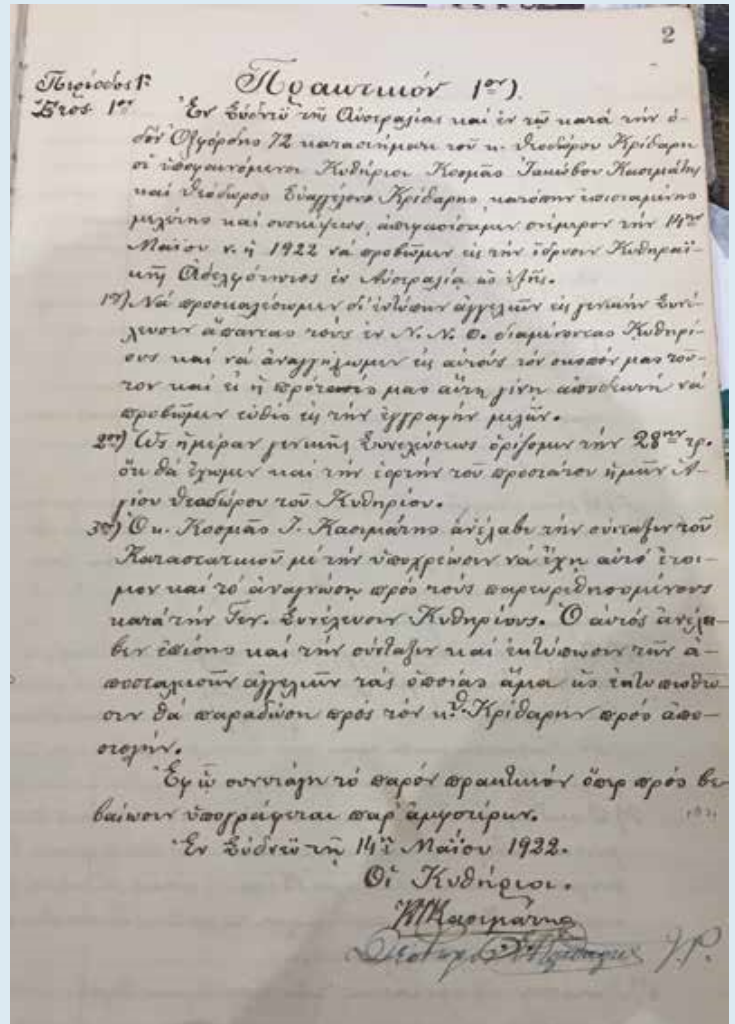 2
Πρακτικόν 1ον)
Περίοδος 1η
Έτος 1ον
Ἐν Σύδνεϋ τῆς Αὐστραλίας καὶ ἐν τῷ κατὰ τὴν ὁ-
δὸν Ὀξφόρδης 72 καταστήματι τοῦ κ. Θεοδώρου Κρίθαρη
οἱ ὑποφαινόμενοι Κυθήριοι Κοσμᾶς Ἰακώβου Κασιμάτης
καὶ Θεόδωρος Εὐαγγέλου Κρίθαρης, κατόπιν ἐπισταμένης
μελέτης καὶ συσκέψεως, ἀπεφασίσαμεν σήμερον τὴν 14ην
Μαΐου ν. ἡ 1922 νὰ προβῶμεν εἰς τὴν ἵδρυσιν Κυθηραϊ-
κῆς Ἀδελφότητος ἐν Αὐστραλίᾳ ὡς ἑξῆς.
1ον) Νὰ προσκαλέσωμεν δι' ἐντύπων ἀγγελιῶν εἰς γενικὴν Συνέ-
λευσιν ἅπαντας τοὺς ἐν Ν. Ν. Ο. διαμένοντας Κυθηρί-
ους καὶ νὰ ἀναγγείλωμεν εἰς αὐτοὺς τὸν σκοπόν μας τοῦ-
τον καὶ εἰ ἡ πρότασίς μας αὕτη γίνῃ ἀποδεκτὴ νὰ
προβῶμεν εὐθὺς εἰς τὴν ἐγγραφὴν μελῶν.
2ον) Ὡς ἡμέραν γενικῆς Συνελεύσεως ὁρίζομεν τὴν 28ην τρ.
ὅτε θὰ ἔχωμεν καὶ τὴν ἑορτὴν τοῦ προστάτου ἡμῶν Ἁ-
γίου Θεοδώρου τοῦ Κυθηρίου.
3ον) Ὁ κ. Κοσμᾶς Ι. Κασιμάτης ἀνέλαβε τὴν σύνταξιν τοῦ
Καταστατικοῦ μὲ τὴν ὑποχρέωσιν νὰ ἔχῃ αὐτὸ ἕτοι-
μον καὶ τὸ ἀναγνώσῃ πρὸς τοὺς παρευρεθησομένους
κατὰ τὴν Γεν. Συνέλευσιν Κυθηρίους. Ὁ αὐτὸς ἀνέλα-
βεν ἐπίσης καὶ τὴν σύνταξιν καὶ ἐκτύπωσιν τῶν ἀ-
ποσταλησῶν ἀγγελιῶν τὰς ὁποίας ἅμα ὡς ἐκτυπωθῶ-
σιν θὰ παραδώσῃ πρὸς τὸν κ. Θ. Κρίθαρην πρὸς ἀπο-
στολήν.
Ἐφ' ᾧ συνετάγη τὸ παρὸν πρακτικὸν ὅπερ πρὸς βε-
βαίωσιν ὑπογράφεται παρ' ἀμφοτέρων.
Ἐν Σύδνεϋ τῇ 14ῃ Μαΐου 1922.
Οἱ Κυθήριοι.
Κασιμάτης